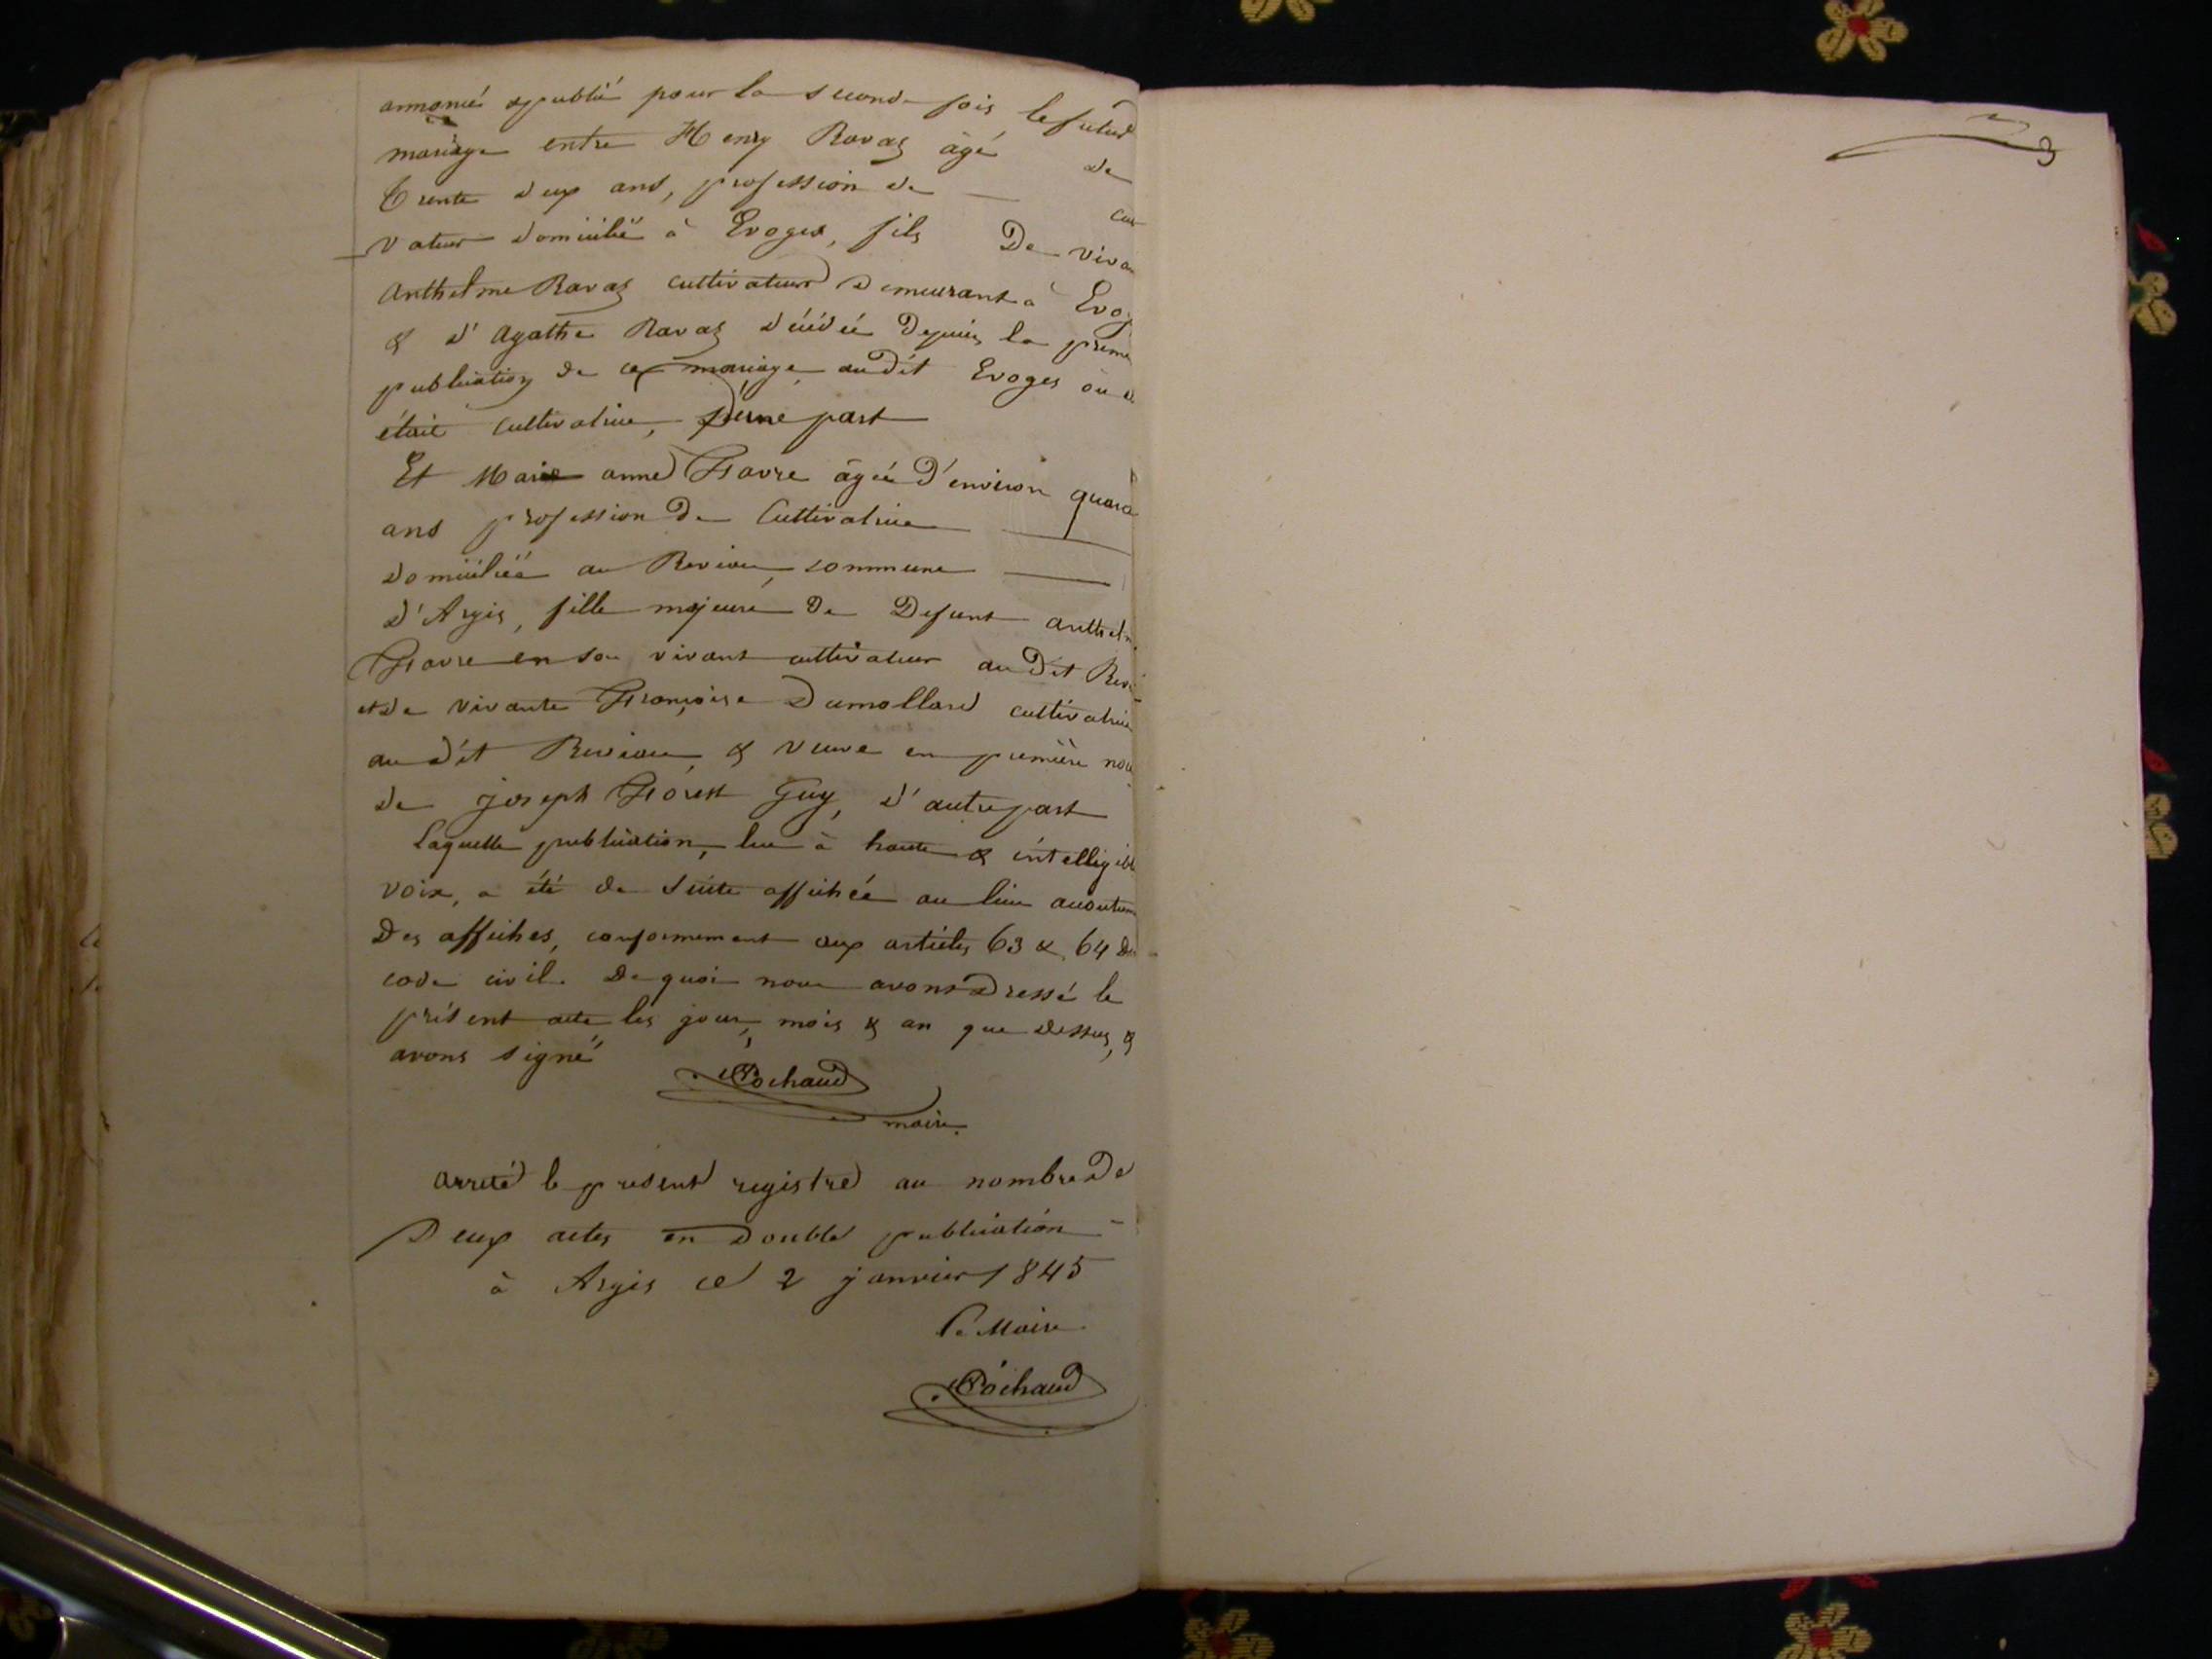 annoncé & publié pour la seconde fois le futur
mariage entre Henry Ravaz âgé de
trente deux ans, profession de — cul
vateur domicilié à Evoges, fils De viva
anthelme Ravaz cultivateur demeurant à Evog
& d'agathe Ravaz décédée Depuis la premi
publication de ce mariage audit Evoges où e
était cultivatrice, d'une part
Et Marie anne Favre âgée D'environ quara
ans profession De Cultivatrice —
domiciliée au Revieu, commune —
d'Argis, fille majeure De Defunt anthelm
Favre en son vivant cultivateur audit Revi
et de vivante Françoise Dumollard cultivatrice
audit Revieu, & veuve en première noc
de joseph Forest Guy, d'autre part
Laquelle publication, lue à haute & intelligible
voix, a été de suite affichée au lieu accoutumé
Des affiches, conformement aux articles 63 & 64 du
code civil. De quoi nous avons Dressé le
présent acte les jour, mois & an que dessus, &
avons signé
Cochaud
maire.
arreté le présent registre au nombre De
Deux actes en Double publication -
à Argis ce 2 janvier 1845
Le Maire
Cochaud
3